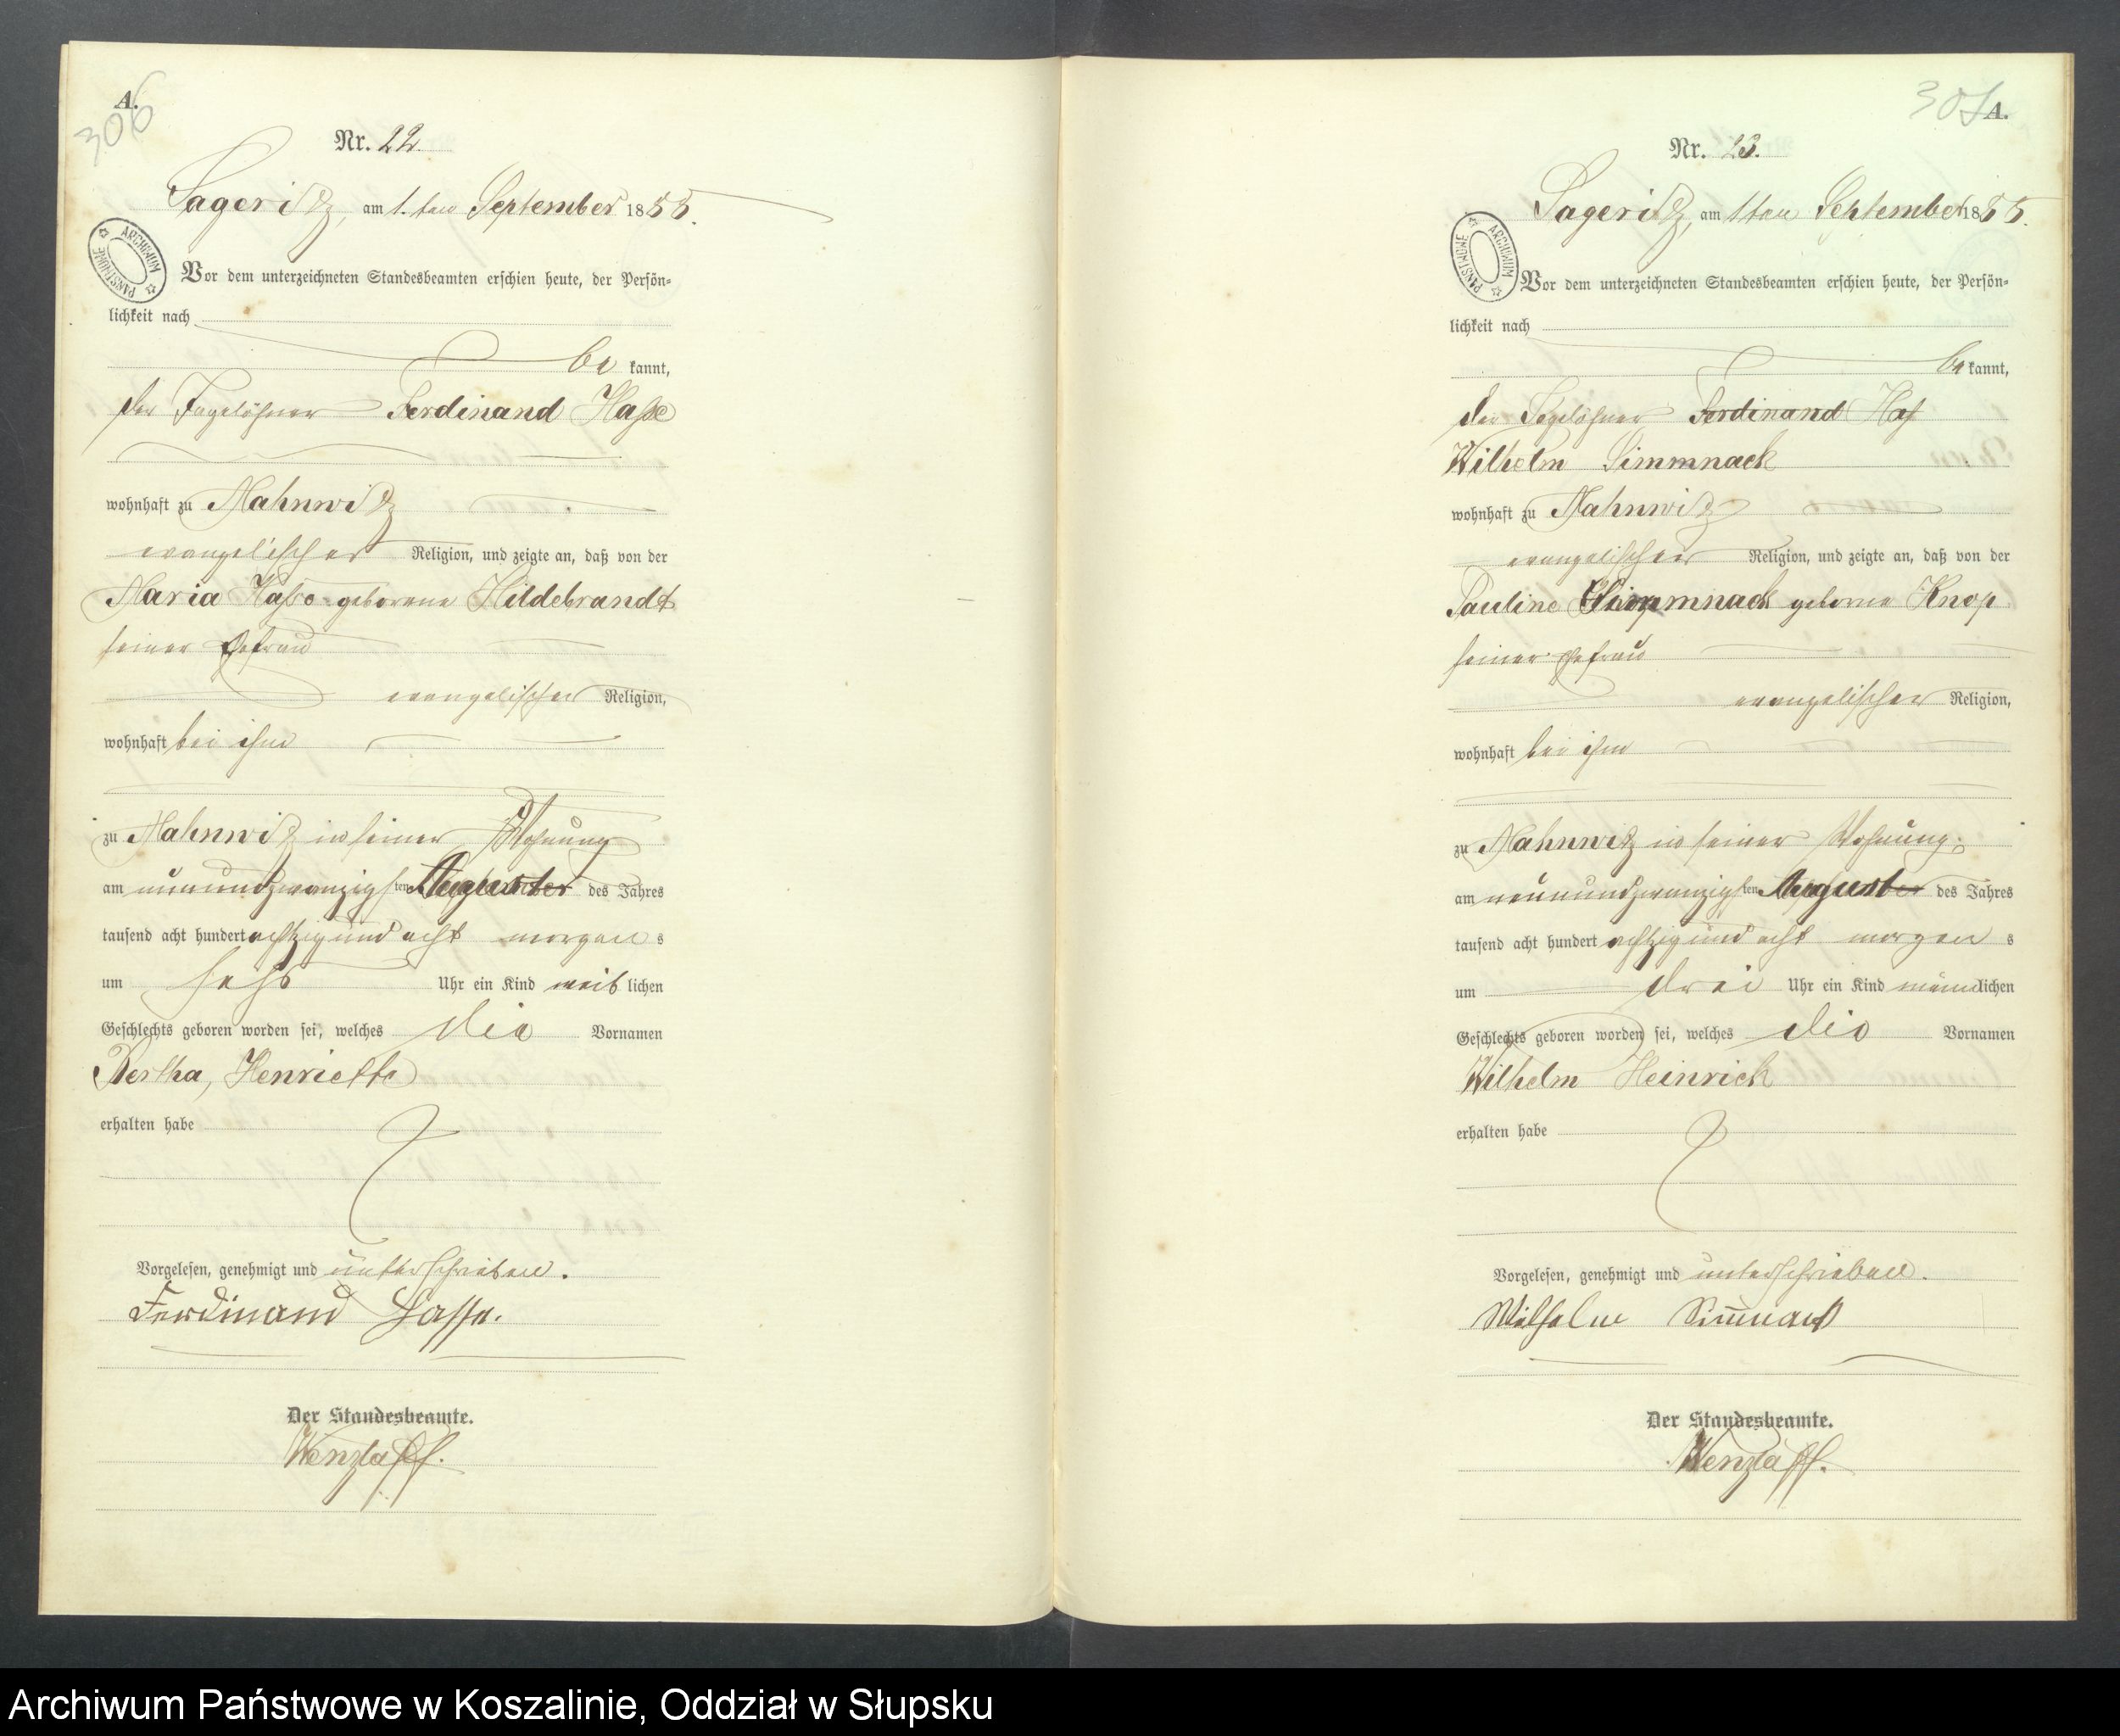 A.
306
Nr. 22
Sageritz, am 1. ten September 1888.
ARCHIWUM PAŃSTWOWE
Vor dem unterzeichneten Standesbeamten erschien heute, der Persön-
lichkeit nach
be kannt,
der Tagelöhner Ferdinand Hasse
wohnhaft zu Mahnwitz
evangelischer Religion, und zeigte an, daß von der
Maria Hasse geborene Hildebrandt
seiner Ehefrau
evangelischer Religion,
wohnhaft bei ihm
zu Mahnwitz in seiner Wohnung
am neunundzwanzigsten August des Jahres
tausend acht hundert achtzig und acht morgen s
um sechs Uhr ein Kind weib lichen
Geschlechts geboren worden sei, welches die Vornamen
Bertha, Henriette
erhalten habe
Vorgelesen, genehmigt und unterschrieben.
Ferdinand Hasse.
Der Standesbeamte.
Wenzlaff.
307
A.
Nr. 23.
Sageritz, am 1ten September 1888.
ARCHIWUM PAŃSTWOWE
Vor dem unterzeichneten Standesbeamten erschien heute, der Persön-
lichkeit nach
be kannt,
der Tagelöhner Ferdinand Has
Wilhelm Simmnack
wohnhaft zu Mahnwitz
evangelischer Religion, und zeigte an, daß von der
Pauline Simmnack geborne Knop
seiner Ehefrau
evangelischer Religion,
wohnhaft bei ihm
zu Mahnwitz in seiner Wohnung
am neunundzwanzigsten August des Jahres
tausend acht hundert achtzig und acht morgen s
um drei Uhr ein Kind männlichen
Geschlechts geboren worden sei, welches die Vornamen
Wilhelm Heinrich
erhalten habe
Vorgelesen, genehmigt und unterschrieben.
Wilhelm Simnack
Der Standesbeamte.
Wenzlaff.
Archiwum Państwowe w Koszalinie, Oddział w Słupsku